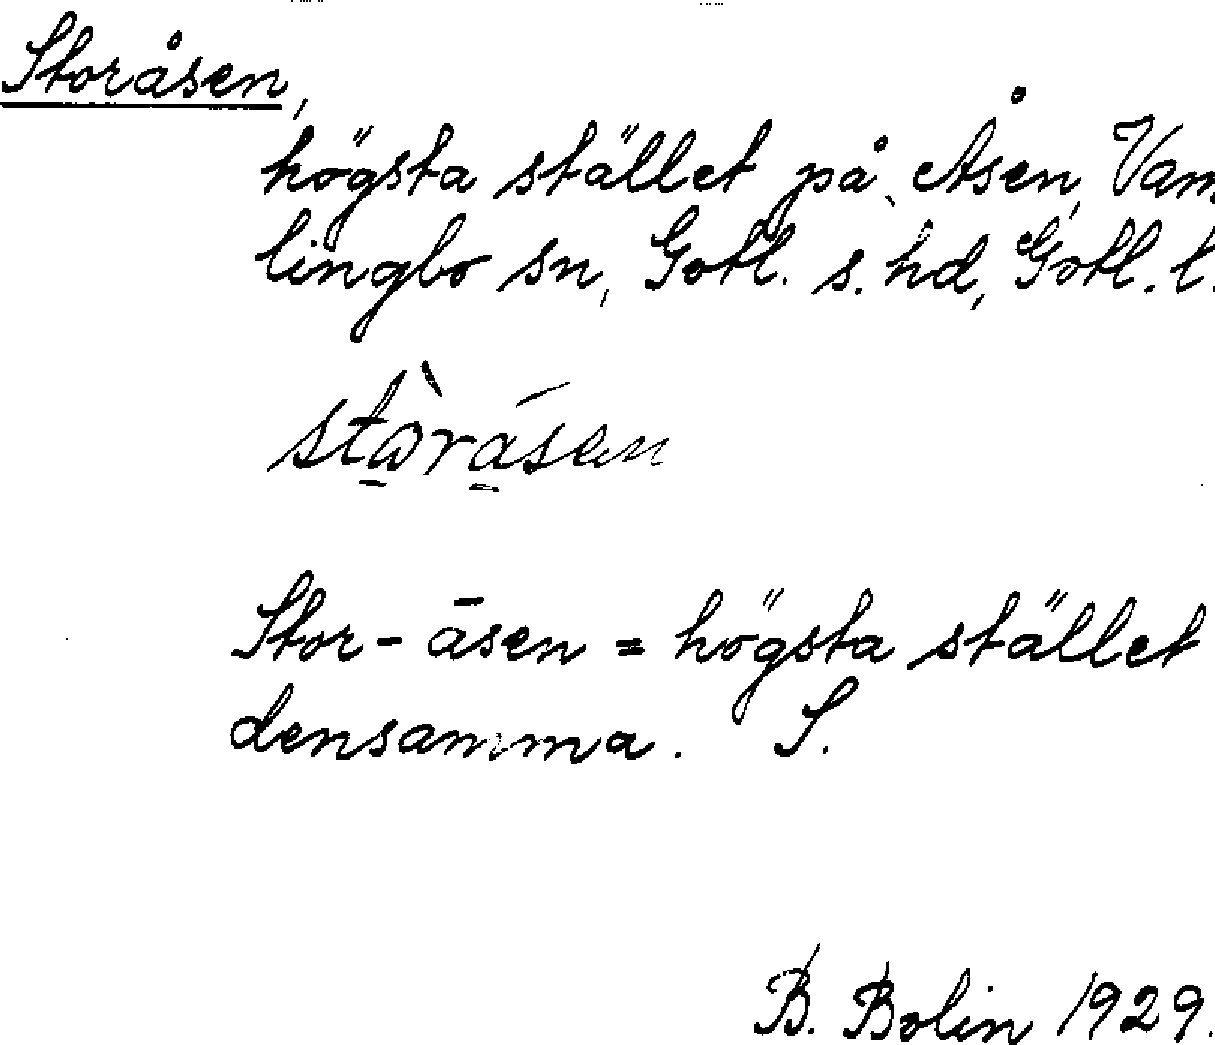 Storåsen,
högsta stället på Åsen, Vam
lingbo sn, Gotl. s. hd, Gotl. l.
Stor-āsen = högsta stället
densamma. S.
B. Bolin 1929.